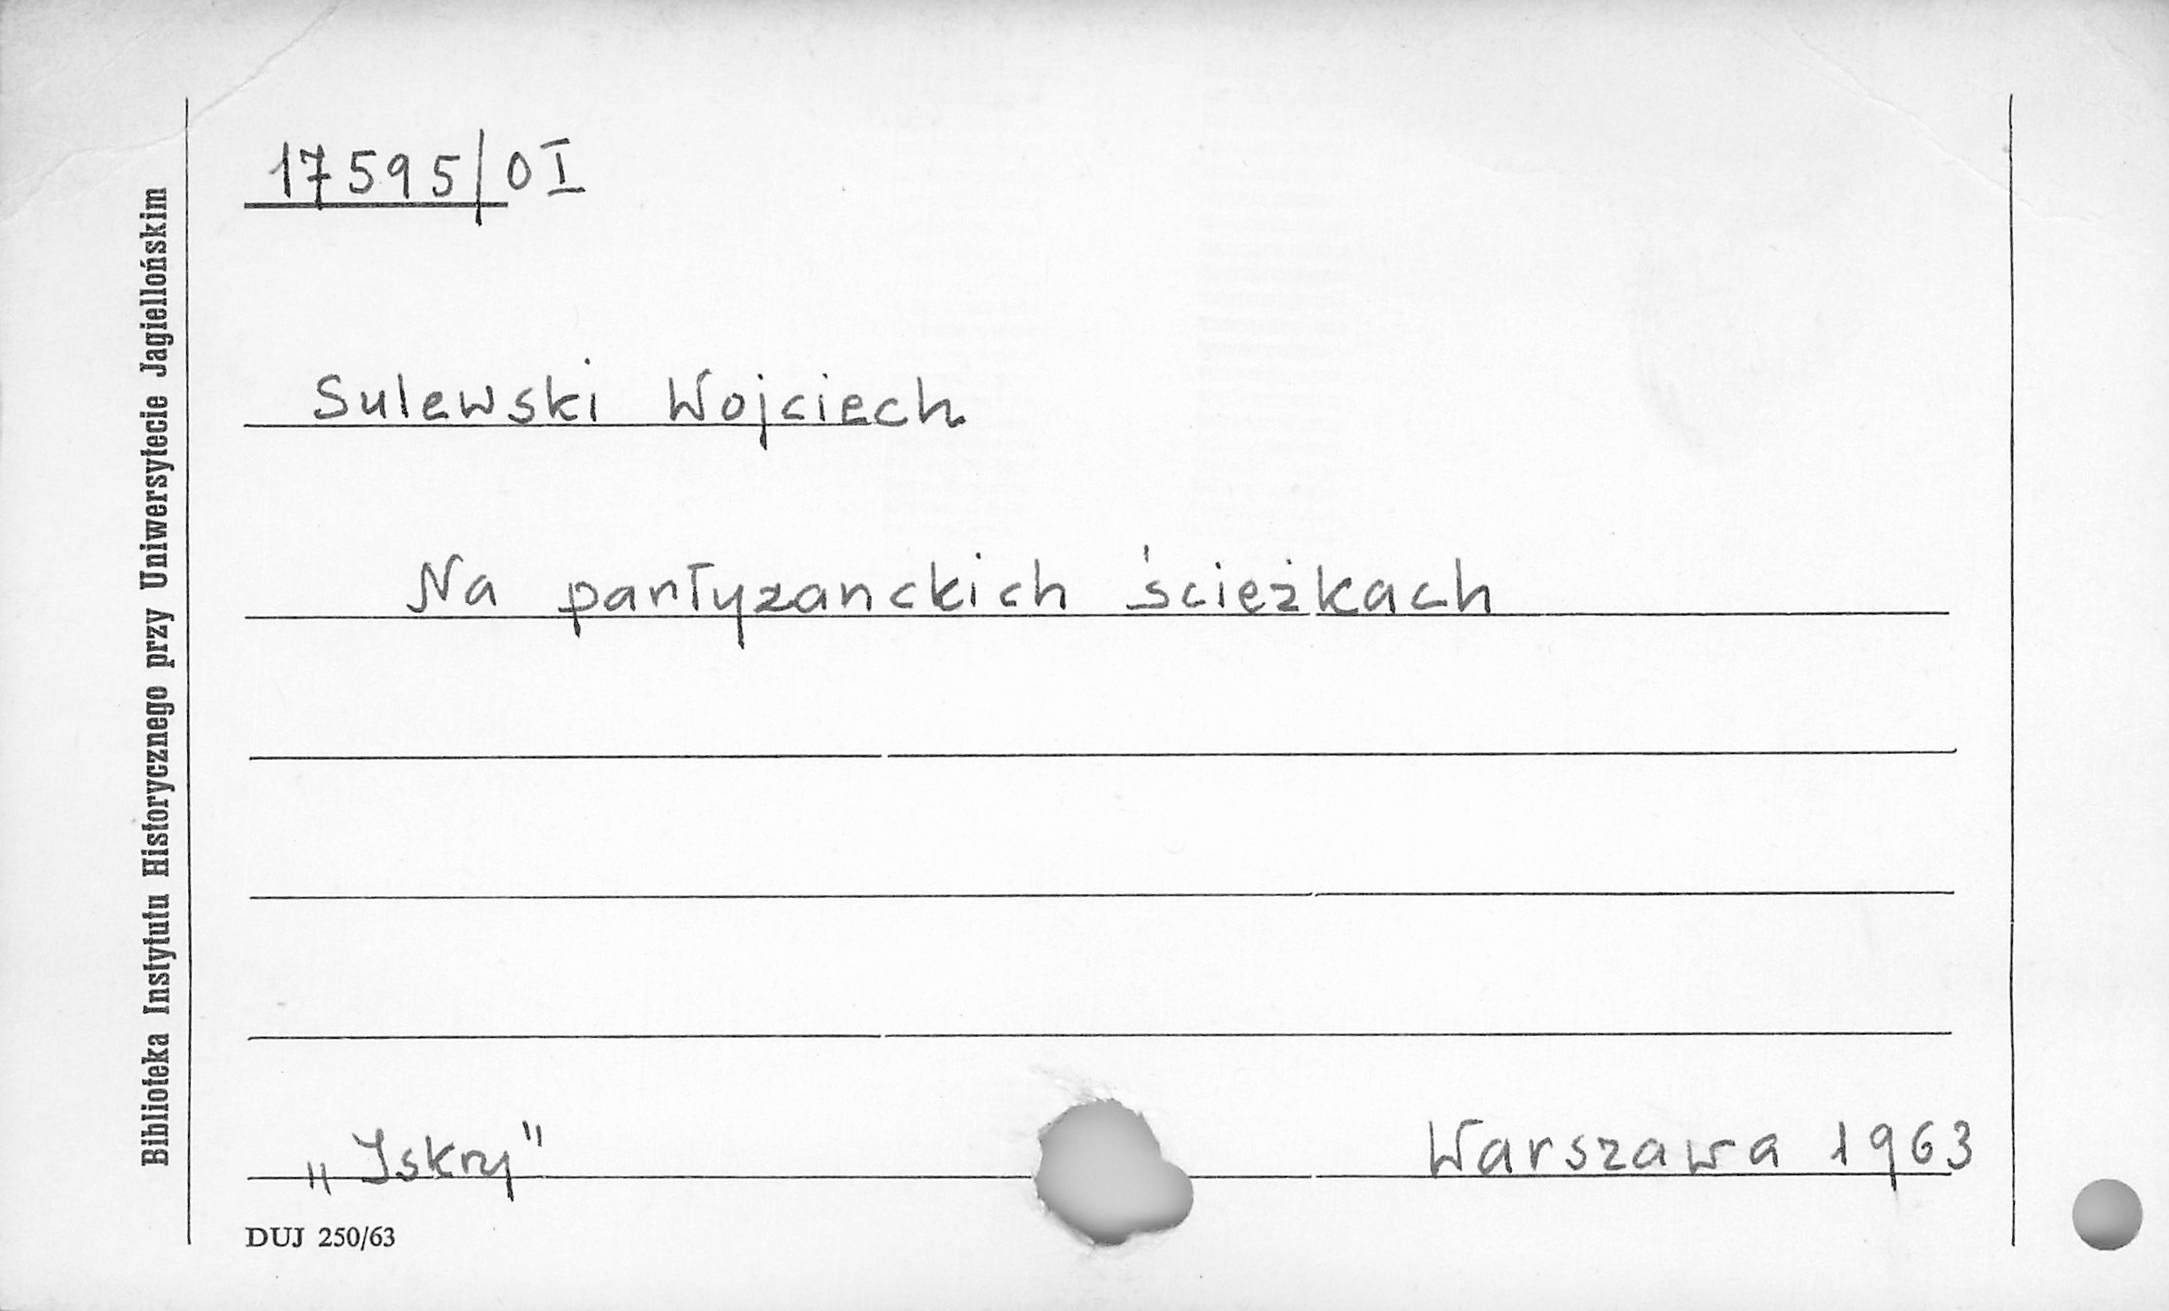 17595/0 I
Sulewski Wojciech
Na partyzanckich ścieżkach
„Iskry"
Warszawa 1963
DUJ 250/63
Biblioteka Instytutu Historycznego przy Uniwersytecie Jagiellońskim